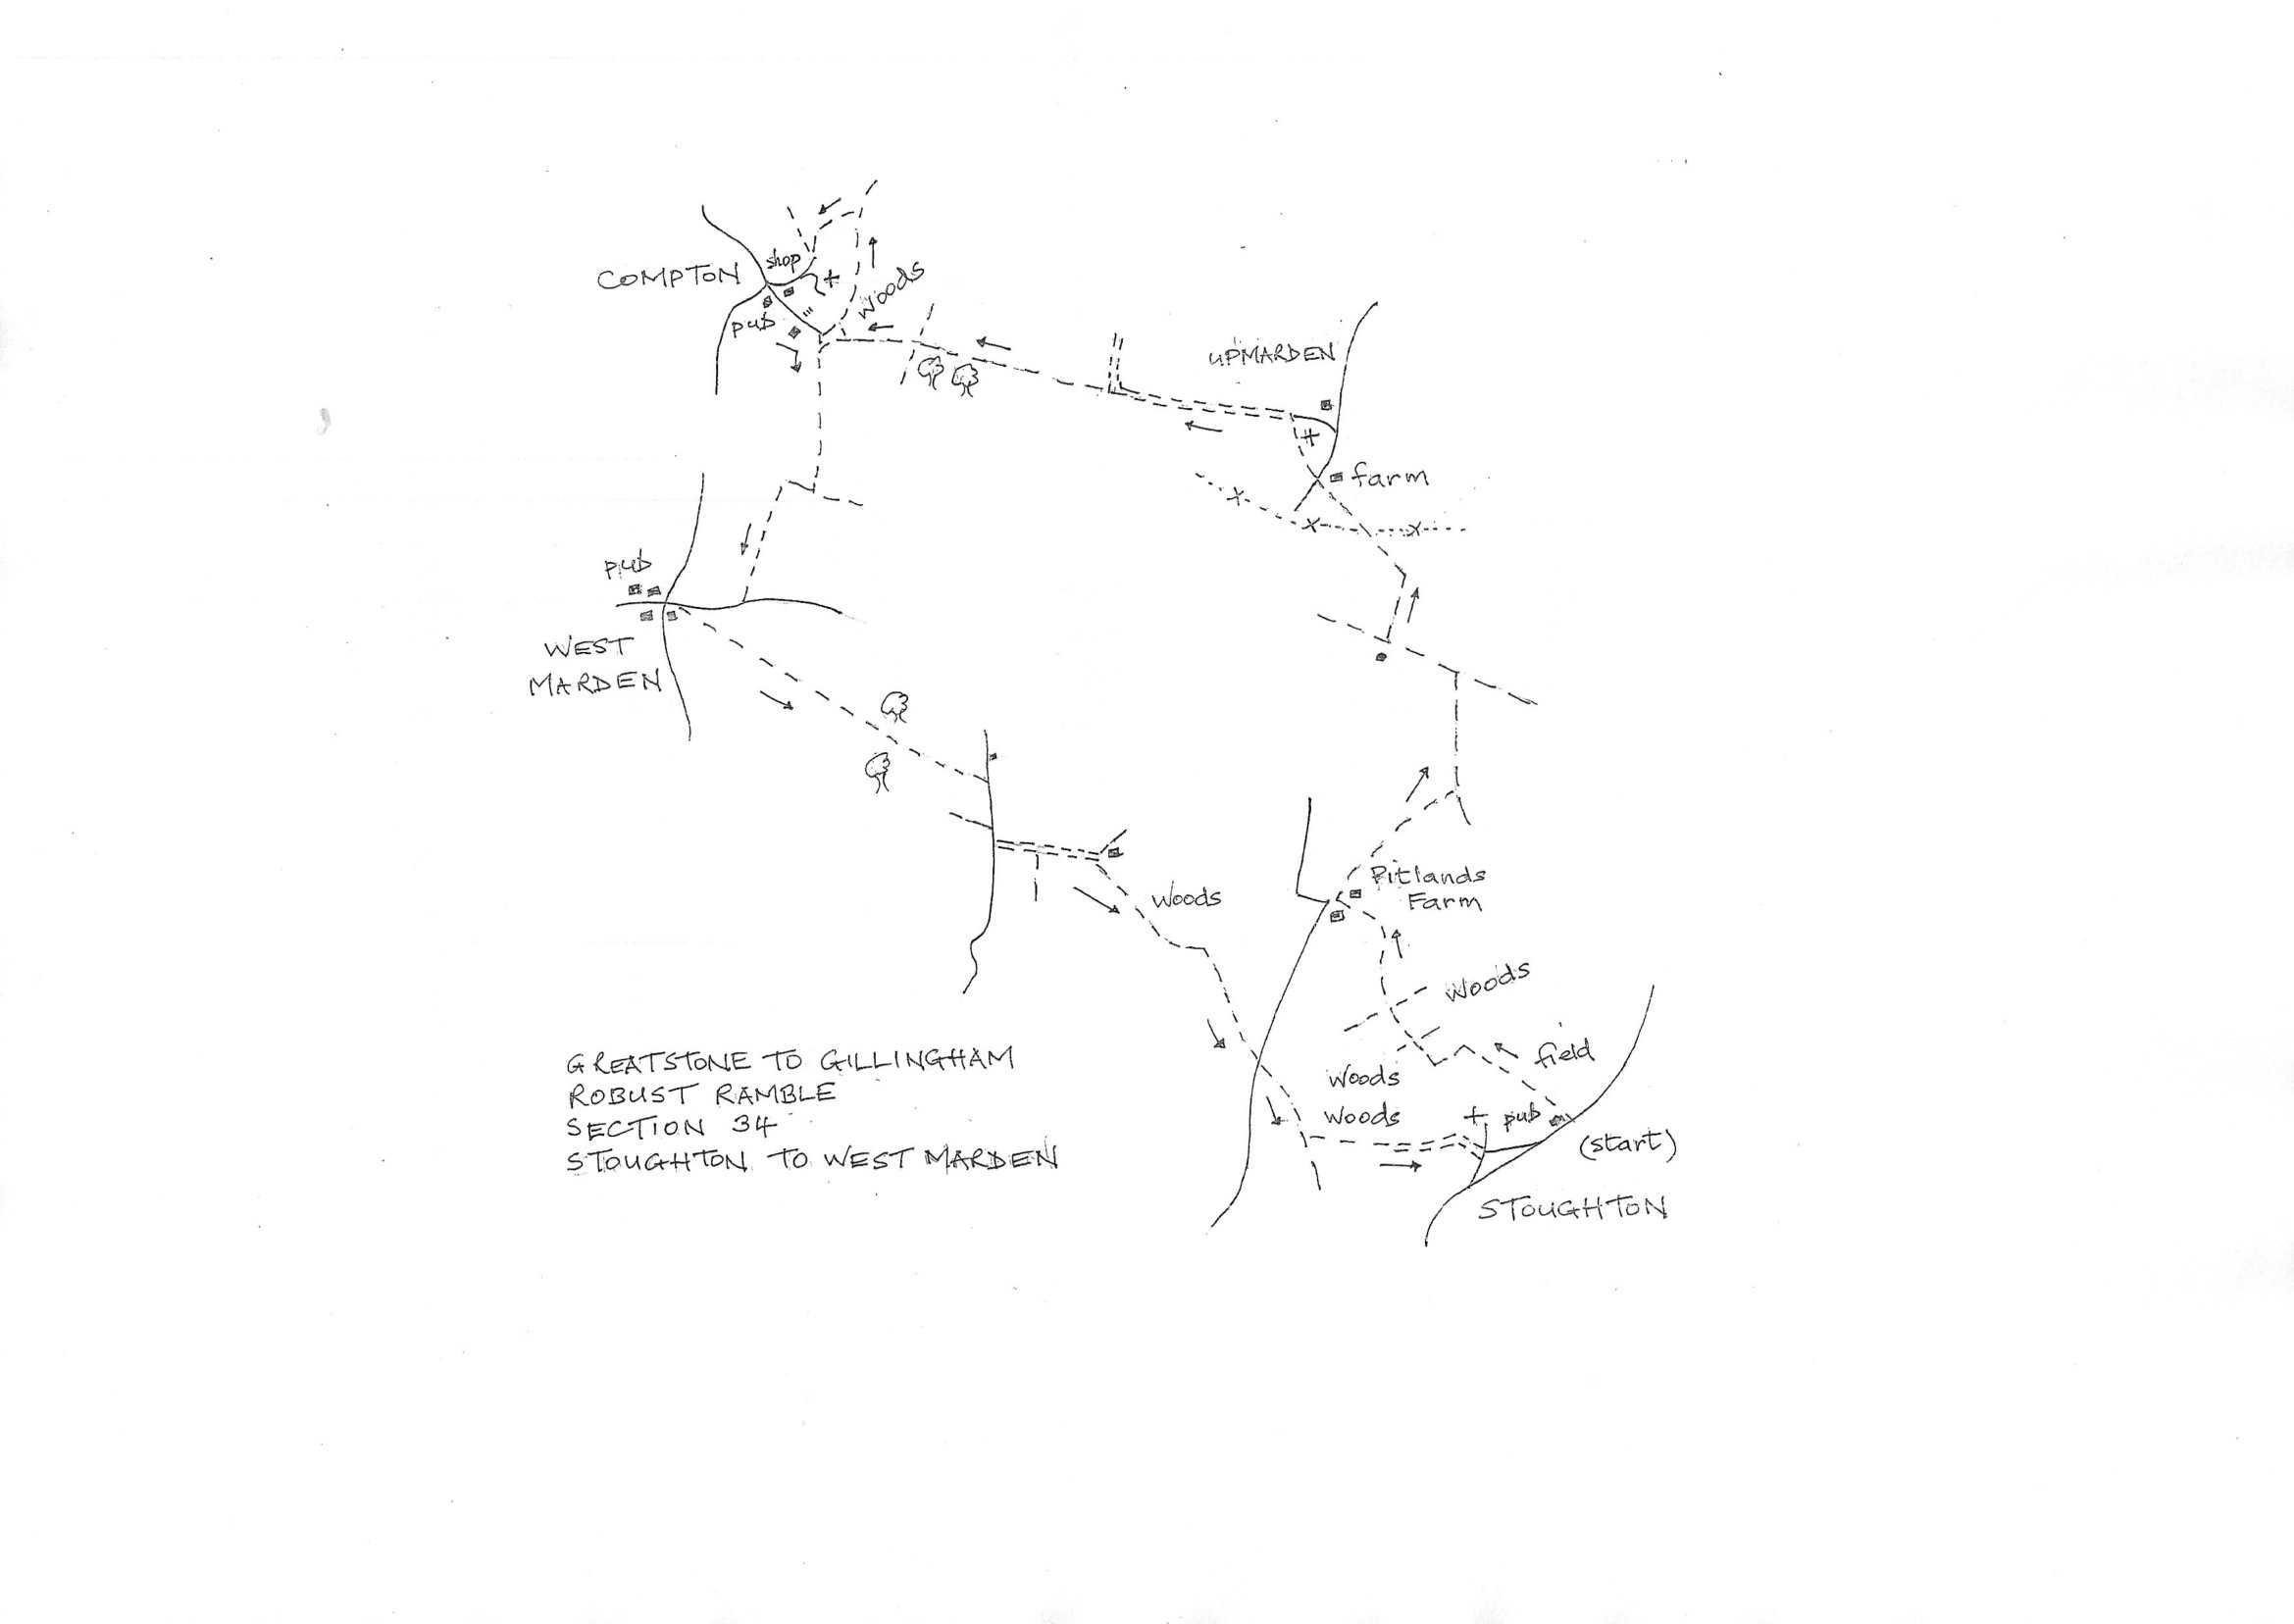 shop
COMPTON
woods
pub
UPMARDEN
farm
pub
WEST
MARDEN
Pitlands
Farm
woods
woods
field
woods
woods
pub
(start)
STOUGHTON
GREATSTONE TO GILLINGHAM
ROBUST RAMBLE
SECTION 34
STOUGHTON TO WEST MARDEN